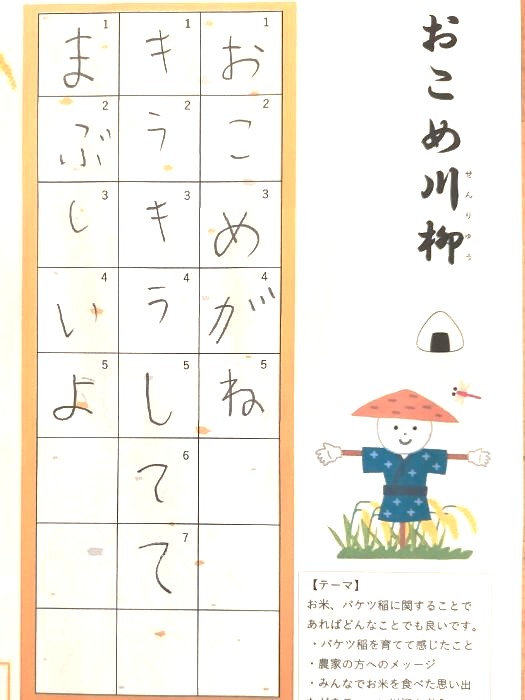 おこめ川柳
せんりゅう
1 お
2 こ
3 め
4 が
5 ね
1 き
2 う
3 き
4 う
5 し
6 て
7 て
1 ま
2 ぶ
3 し
4 い
5 よ
【テーマ】
お米、バケツ稲に関することで
あればどんなことでも良いです。
・バケツ稲を育てて感じたこと
・農家の方へのメッージ
・みんなでお米を食べた思い出